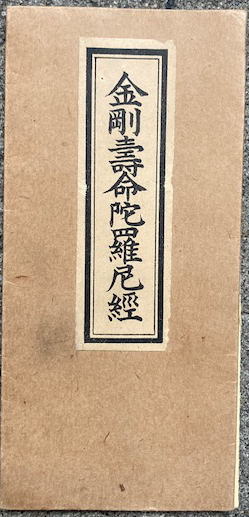 金剛壽命陀羅尼經